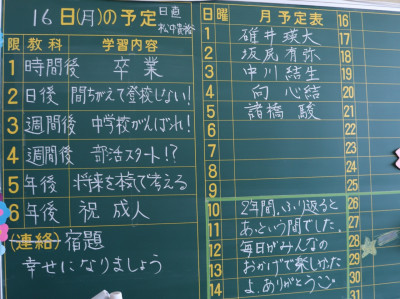 16日(月)の予定 日直
限 教科 学習内容
1 時間後 卒業
2 日後 間ちがえて登校しない!
3 週間後 中学校がんばれ!
4 週間後 部活スタート!?
5 年後 将来を本気で考える
6 年後 祝 成人
(連絡) 宿題
幸せになりましょう
日 曜 月予定表
1 碓井 瑛大
2 坂尻 有弥
3 中川 結生
4 向 心結
5 諸橋 駿
6
7
8
9
10 2年間、ふり返ると
11 あっという間でした。
12 毎日がみんなの
13 おかげで楽しかった
14 よ、ありがとう
16
17
18
19
20
21
22
23
24
25
26
27
28
29
30
31